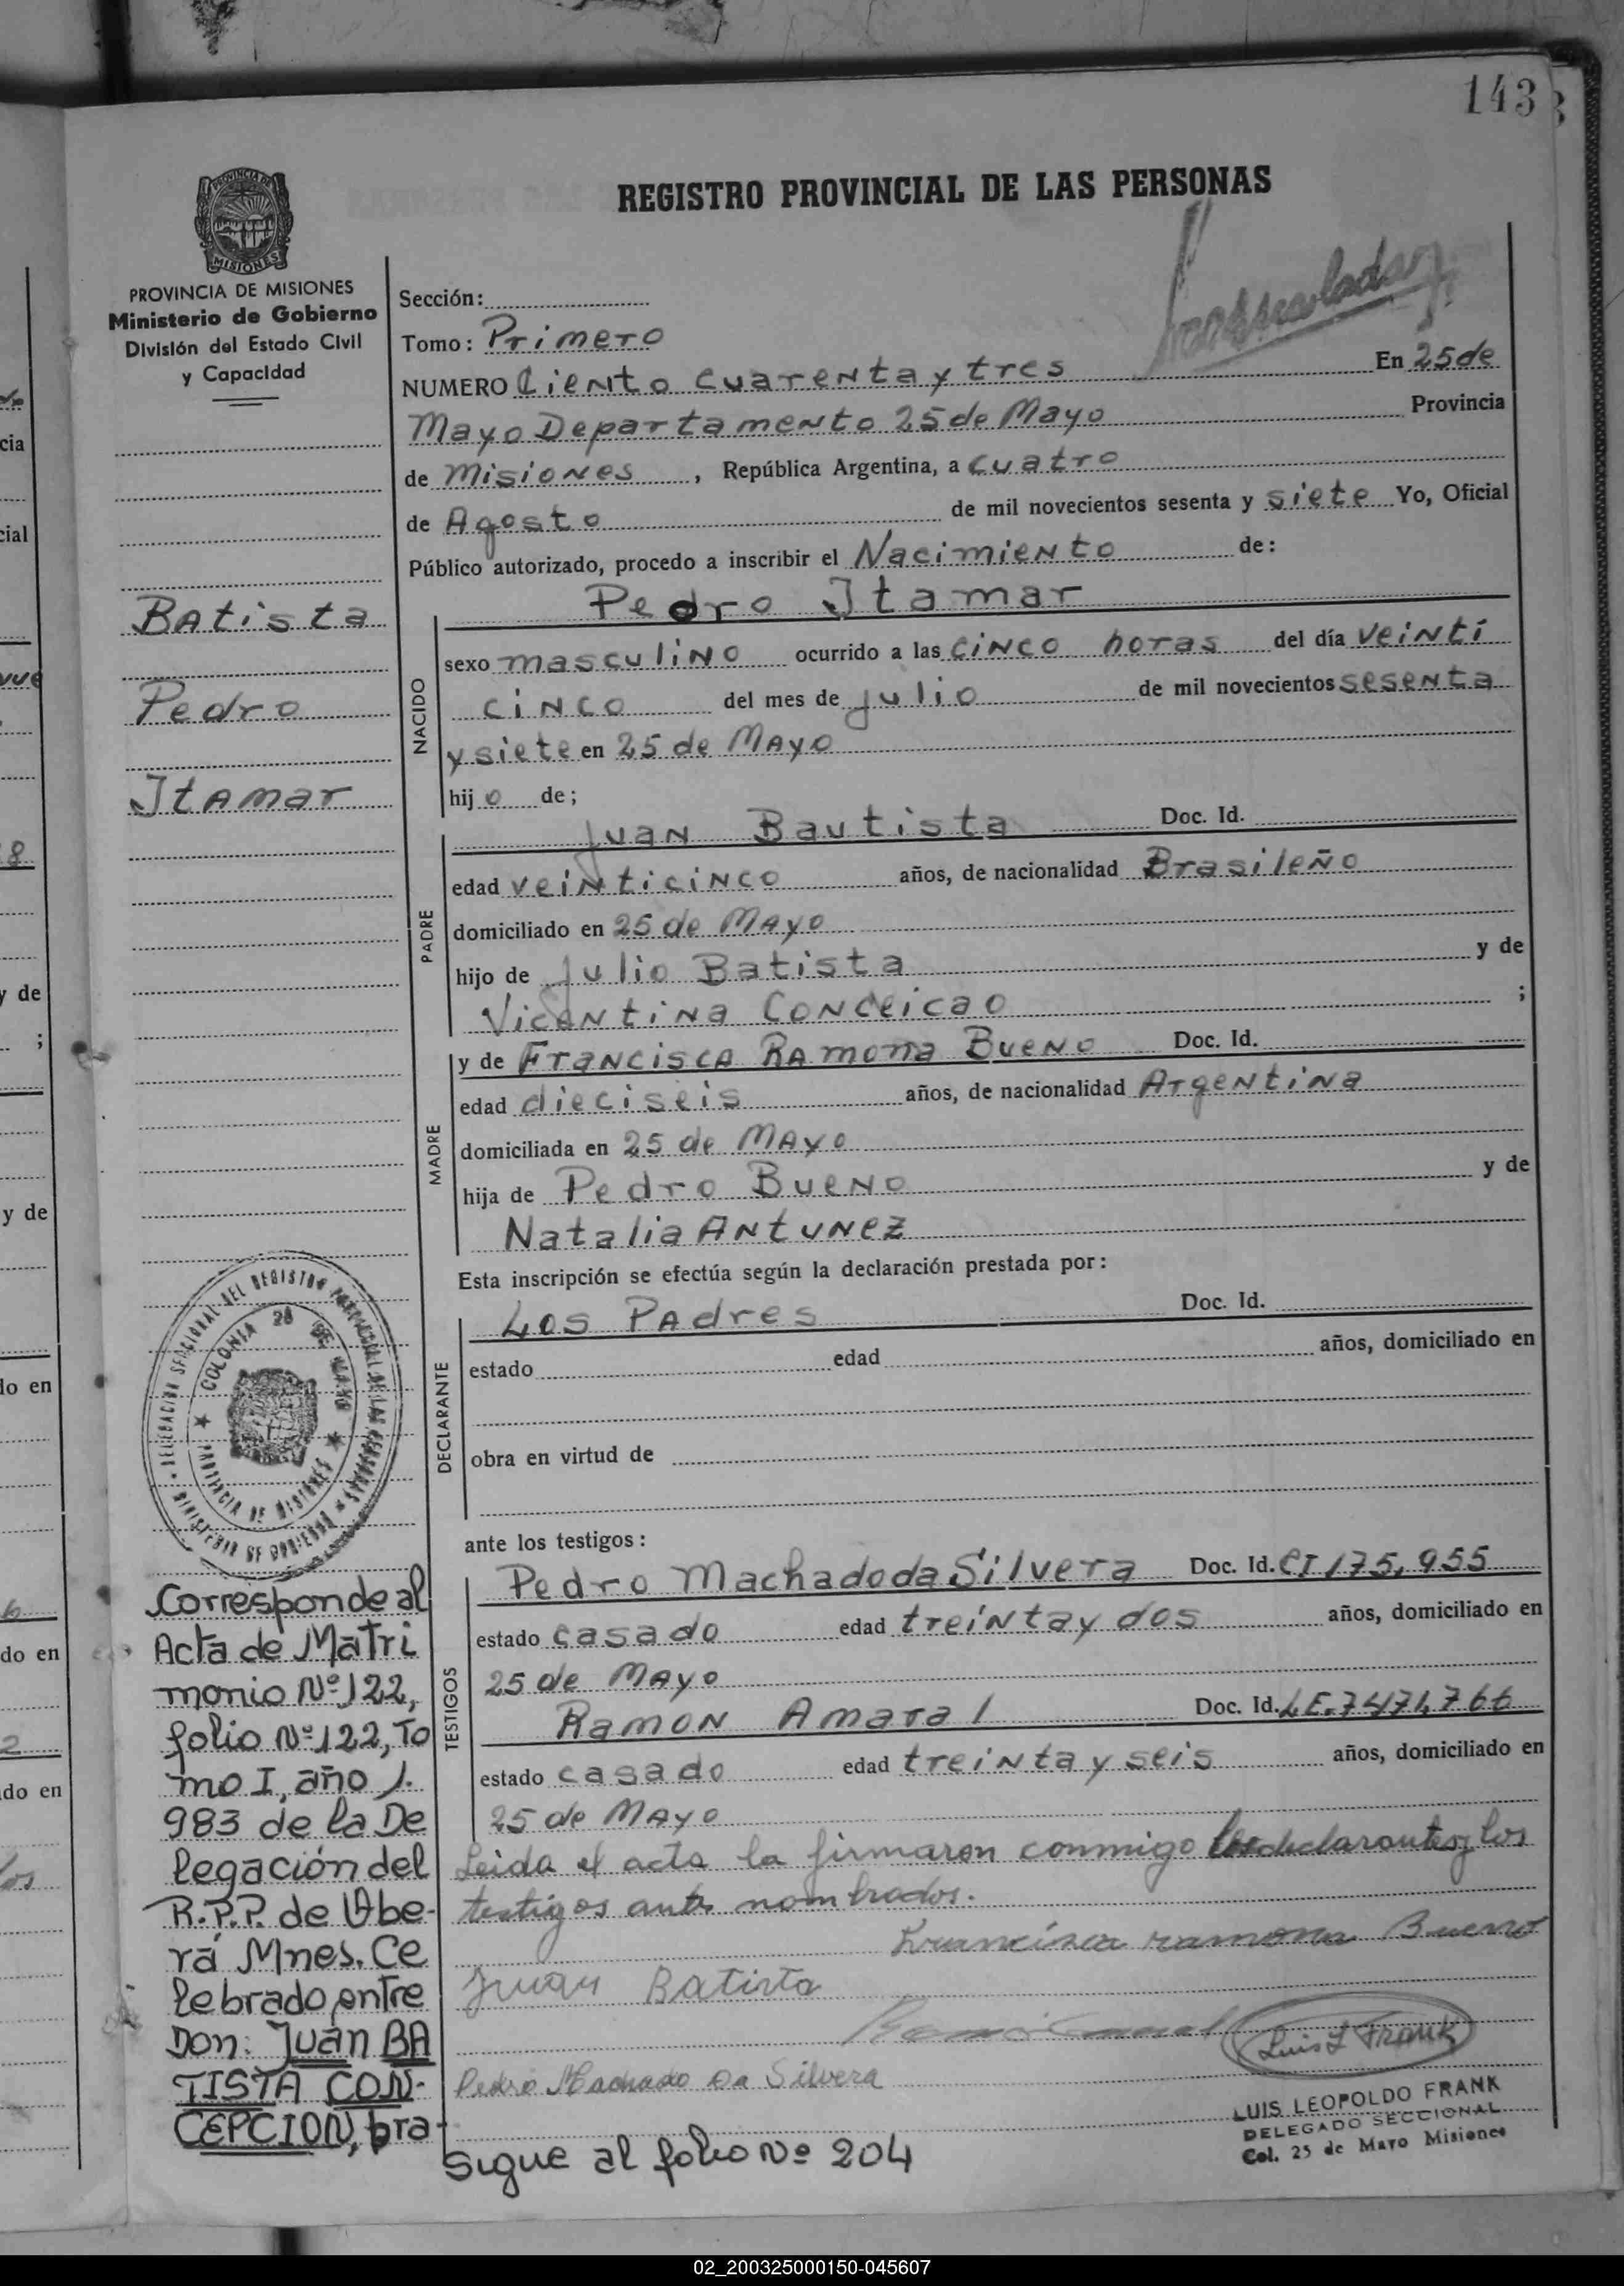 143
REGISTRO PROVINCIAL DE LAS PERSONAS
PROVINCIA DE MISIONES
Ministerio de Gobierno
División del Estado Civil
y Capacidad
Sección:
Tomo: Primero
NUMERO Ciento cuarenta y tres En 25 de
Mayo Departamento 25 de Mayo Provincia
de Misiones, República Argentina, a cuatro
de Agosto de mil novecientos sesenta y siete Yo, Oficial
Público autorizado, procedo a inscribir el Nacimiento de:
Batista
Pedro
Itamar
NACIDO
Pedro Itamar
sexo masculino ocurrido a las cinco horas del día veinti
cinco del mes de julio de mil novecientos sesenta
y siete en 25 de Mayo
hijo de;
PADRE
Juan Bautista Doc. Id.
edad veinticinco años, de nacionalidad Brasileño
domiciliado en 25 de Mayo
hijo de Julio Batista y de
Vicentina Conceicao ;
MADRE
y de Francisca Ramona Bueno Doc. Id.
edad dieciseis años, de nacionalidad Argentina
domiciliada en 25 de Mayo
hija de Pedro Bueno y de
Natalia Antunez
Esta inscripción se efectúa según la declaración prestada por:
DECLARANTE
Los Padres Doc. Id.
estado edad años, domiciliado en
obra en virtud de
ante los testigos:
TESTIGOS
Pedro Machado da Silvera Doc. Id. CI 175,955
estado casado edad treinta y dos años, domiciliado en
25 de Mayo
Ramon Amaral Doc. Id. LE. 7474,766
estado casado edad treinta y seis años, domiciliado en
25 de Mayo
Leida el acta la firmaron conmigo los declarantes y los
testigos ante nombrados.
Francisca ramona Bueno
Juan Batista
Luis L Frank
Pedro Machado Da Silvera
LUIS LEOPOLDO FRANK
DELEGADO SECCIONAL
Col. 25 de Mayo Misiones
Corresponde al
Acta de Matri
monio Nº 122,
folio Nº 122, To
mo I, año 1.
983 de la De
legación del
R.P.P. de Obe-
rá Mnes. Ce
lebrado entre
Don: Juan BA
TISTA CON-
CEPCION, bra-
Sigue al folio Nº 204
02_200325000150-045607